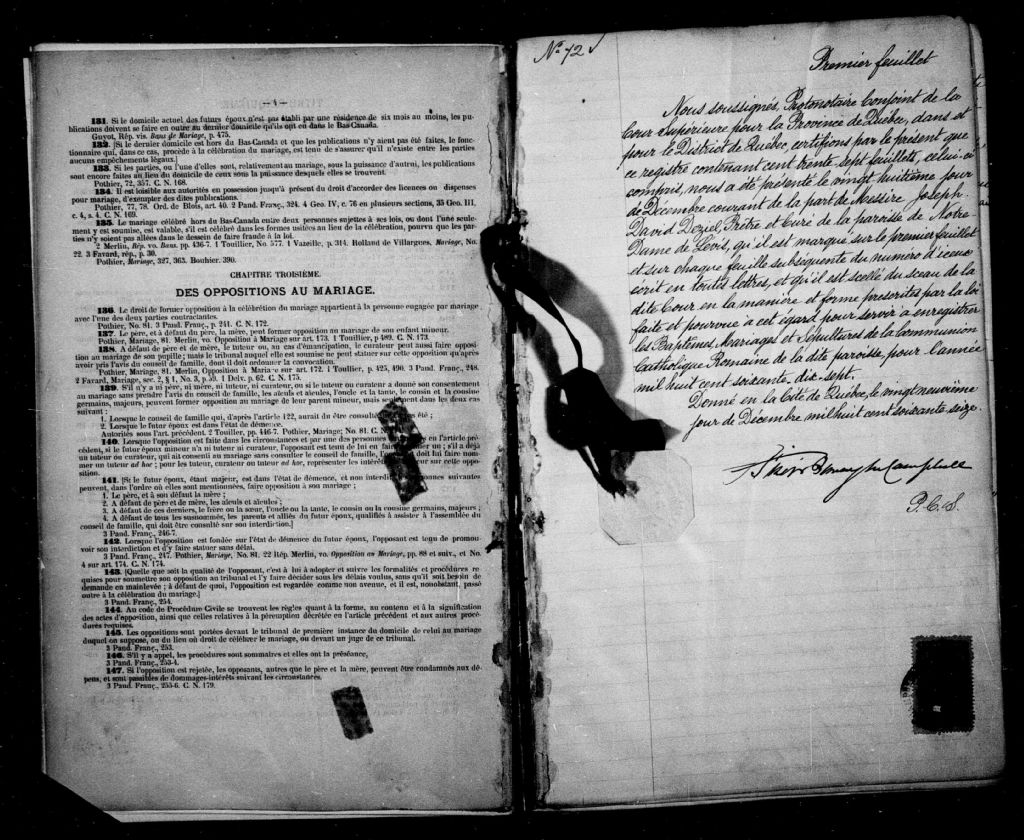 — 4 —
131. Si le domicile actuel des futurs époux n'est pas établi par une résidence de six mois au moins, les pu-
blications doivent se faire en outre au dernier domicile qu'ils ont eu dans le Bas-Canada.
Guyot, Rép. vis. Bans de Mariage, p. 475.
132. [Si le dernier domicile est hors du Bas-Canada et que les publications n'y aient pas été faites, le fonc-
tionnaire qui, dans ce cas, procède à la célébration du mariage, est tenu de s'assurer qu'il n'existe entre les parties
aucuns empêchements légaux.]
133. Si les parties, ou l'une d'elles sont, relativement au mariage, sous la puissance d'autrui, les publications
sont encore faites au lieu du domicile de ceux sous la puissance desquels elles se trouvent.
Pothier, 72, 357. C. N. 168.
134. Il est loisible aux autorités en possession jusqu'à présent du droit d'accorder des licences ou dispenses
pour mariage, d'exempter des dites publications.
Pothier, 77, 78. Ord. de Blois, art. 40. 2 Pand. Franç., 324. 4 Geo. IV, c. 76 en plusieurs sections, 35 Geo. III,
c. 4, s. 4. C. N. 169.
135. Le mariage célébré hors du Bas-Canada entre deux personnes sujettes à ses lois, ou dont l'une seule-
ment y est soumise, est valable, s'il est célébré dans les formes usitées au lieu de la célébration, pourvu que les par-
ties n'y soient pas allées dans le dessein de faire fraude à la loi.
2 Merlin, Rép. vo. Bans. pp. 436-7. 1 Touillier, No. 577. 1 Vazeille, p. 314. Rolland de Villargues, Mariage, No.
22. 3 Favard, rép., p. 30.
Pothier, Mariage, 327, 363. Bouhier. 390.
CHAPITRE TROISIÈME.
DES OPPOSITIONS AU MARIAGE.
136. Le droit de former opposition à la célébration du mariage appartient à la personne engagée par mariage
avec l'une des deux parties contractantes.
Pothier, No. 81. 3 Pand. Franç., p. 241. C. N. 172.
137. Le père, et à défaut du père, la mère, peut former opposition au mariage de son enfant mineur.
Pothier, Mariage, 81. Merlin, vo. Opposition à Mariage sur art. 173. 1 Touillier, p 489. C. N. 173.
138. A défaut de père et de mère, le tuteur ou, au cas d'émancipation, le curateur peut aussi faire opposi-
tion au mariage de son pupille; mais le tribunal auquel elle est soumise ne peut statuer sur cette opposition qu'après
avoir pris l'avis du conseil de famille, dont il doit ordonner la convocation.
Pothier, Mariage, 81. Merlin, Opposition à Mariage sur art. 172. 1 Touillier, p. 425, 490. 3 Pand. Franç., 248.
2 Favard, Mariage, sec. 2, § 1, No. 3, p. 59. 1 Delv. p. 62. C. N. 175.
139. S'il n'y a ni père, ni mère, ni tuteur, ni curateur, ou si le tuteur ou curateur a donné son consentement
au mariage sans prendre l'avis du conseil de famille, les aïeuls et aïeules, l'oncle et la tante, le cousin et la cousine
germains, majeurs, peuvent former opposition au mariage de leur parent mineur, mais seulement dans les deux cas
suivant :
1. Lorsque le conseil de famille qui, d'après l'article 122, aurait du être consulté été ;
2. Lorsque le futur époux est dans l'état de démence.
Autorités sous l'art. précédent. 2 Touiller, pp. 446-7. Pothier, Mariage; No. 81. C.
140. Lorsque l'opposition est faite dans les circonstances et par une des personnes en l'article pré-
cédent, si le futur époux mineur n'a ni tuteur ni curateur, l'opposant est tenu de lui en faire un ; s'il a déjà
un tuteur ou curateur, qui ait consenti au mariage sans consulter le conseil de famille, doit lui faire nom-
mer un tuteur ad hoc ; pour les tuteur, curateur ou tuteur ad hoc, représenter les intérêts sur cette oppo-
sition.
141. [Si le futur époux, étant majeur, est dans l'état de démence, et non interdit, personnes suivantes
peuvent, dans l'ordre où elles sont mentionnées, faire opposition à son mariage ;
1. Le père, et à son défaut la mère ;
2. A défaut de père et de mère, les aïeuls et aïeules ;
3. A défaut de ces derniers, le frère ou la sœur, l'oncle ou la tante, le cousin ou la cousine germains, majeurs ;
4. A défaut de tous les susnommés, les parents et alliés du futur époux, qualifiés à assister à l'assemblée du
conseil de famille, qui doit être consulté sur son interdiction.]
3 Pand. Franç., 246-7.
142. Lorsque l'opposition est fondée sur l'état de démence du futur époux, l'opposant est tenu de promou-
voir son interdiction et d'y faire statuer sans délai.
3 Pand. Franç., 247. Pothier, Mariage, No. 81. 22 Rép. Merlin, vo. Opposition au Mariage, pp. 88 et suiv., et No.
4 sur art. 174. C. N. 174.
143. [Quelle que soit la qualité de l'opposant, c'est à lui à adopter et suivre les formalités et procédures re-
quises pour soumettre son opposition au tribunal et l'y faire décider sous les délais voulus, sans qu'il soit besoin de
demande en mainlevée ; à défaut de quoi, l'opposition est regardée comme non avenue, et il est, nonobstant, passé
outre à la célébration du mariage.]
3 Pand. Franç., 254.
144. Au code de Procédure Civile se trouvent les règles quant à la forme, au contenu et à la signification
des actes d'opposition, ainsi que celles relatives à la péremption décrétée en l'article précédent et aux autres procé-
dures requises.
145. Les oppositions sont portées devant le tribunal de première instance du domicile de celui au mariage
duquel on s'oppose, ou du lieu où doit se célébrer le mariage, ou devant un juge de ce tribunal.
3 Pand. Franç., 253.
146. S'il y a appel, les procédures sont sommaires et elles ont la préséance,
3 Pand. Franç., 253-4.
147. Si l'opposition est rejetée, les opposants, autres que le père et la mère, peuvent être condamnés aux dé-
pens, et sont passibles de dommages-intérêts suivant les circonstances.
3 Pand. Franç., 255-6. C. N. 179.
No. 72
Premier feuillet
Nous soussignés, Protonotaire Conjoint de la
Cour Supérieure pour la Province de Québec, dans et
pour le District de Québec, certifions par le présent que
ce registre contenant cent trente-sept feuillets, celui-ci
compris, nous a été présenté le vingt huitième jour
de Décembre courant de la part de Messire Joseph-
David Déziel, Prêtre et Curé de la paroisse de Notre
Dame de Levis, qu'il est marqué sur le premier feuillet
et sur chaque feuille subséquente du numéro d'iceux
écrit en toutes lettres, et qu'il est scellé du sceau de la
dite Cour en la manière et forme prescrites par la loi
faite et pourvue à cet égard pour servir à enregistrer
les Baptêmes, Mariages et Sépultures de la Communion
Catholique Romaine de la dite paroisse pour l'année
mil huit cent soixante-dix-sept.
Donné en la Cité de Québec, le vingt neuvième
jour de Décembre mil huit cent soixante seize.
Campbell
P. C. S.